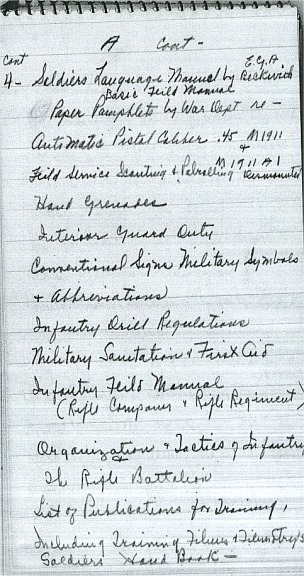 A Cont -
Cont
4- Soldiers Language Manual by E.G.A Beckwith
Basic Feild Manual
Paper Pamphlets by War Dept re -
Automatic Pistol Caliber .45 M1911
+
M1911 A1
Feild Service Scouting & Patrolling Dismounted
Hand Grenades
Interior Guard Duty
Conventional Signs Military Symbols
+ Abbreviations
Infantry Drill Regulations
Military Sanitation & First Aid
Infantry Feild Manual
(Rifle Company & Rifle Regiment)
Organization & Tactics of Infantry
The Rifle Battalion
List of Publications for Training,
Including Training Films & Film Strips
Soldiers Hand Book -